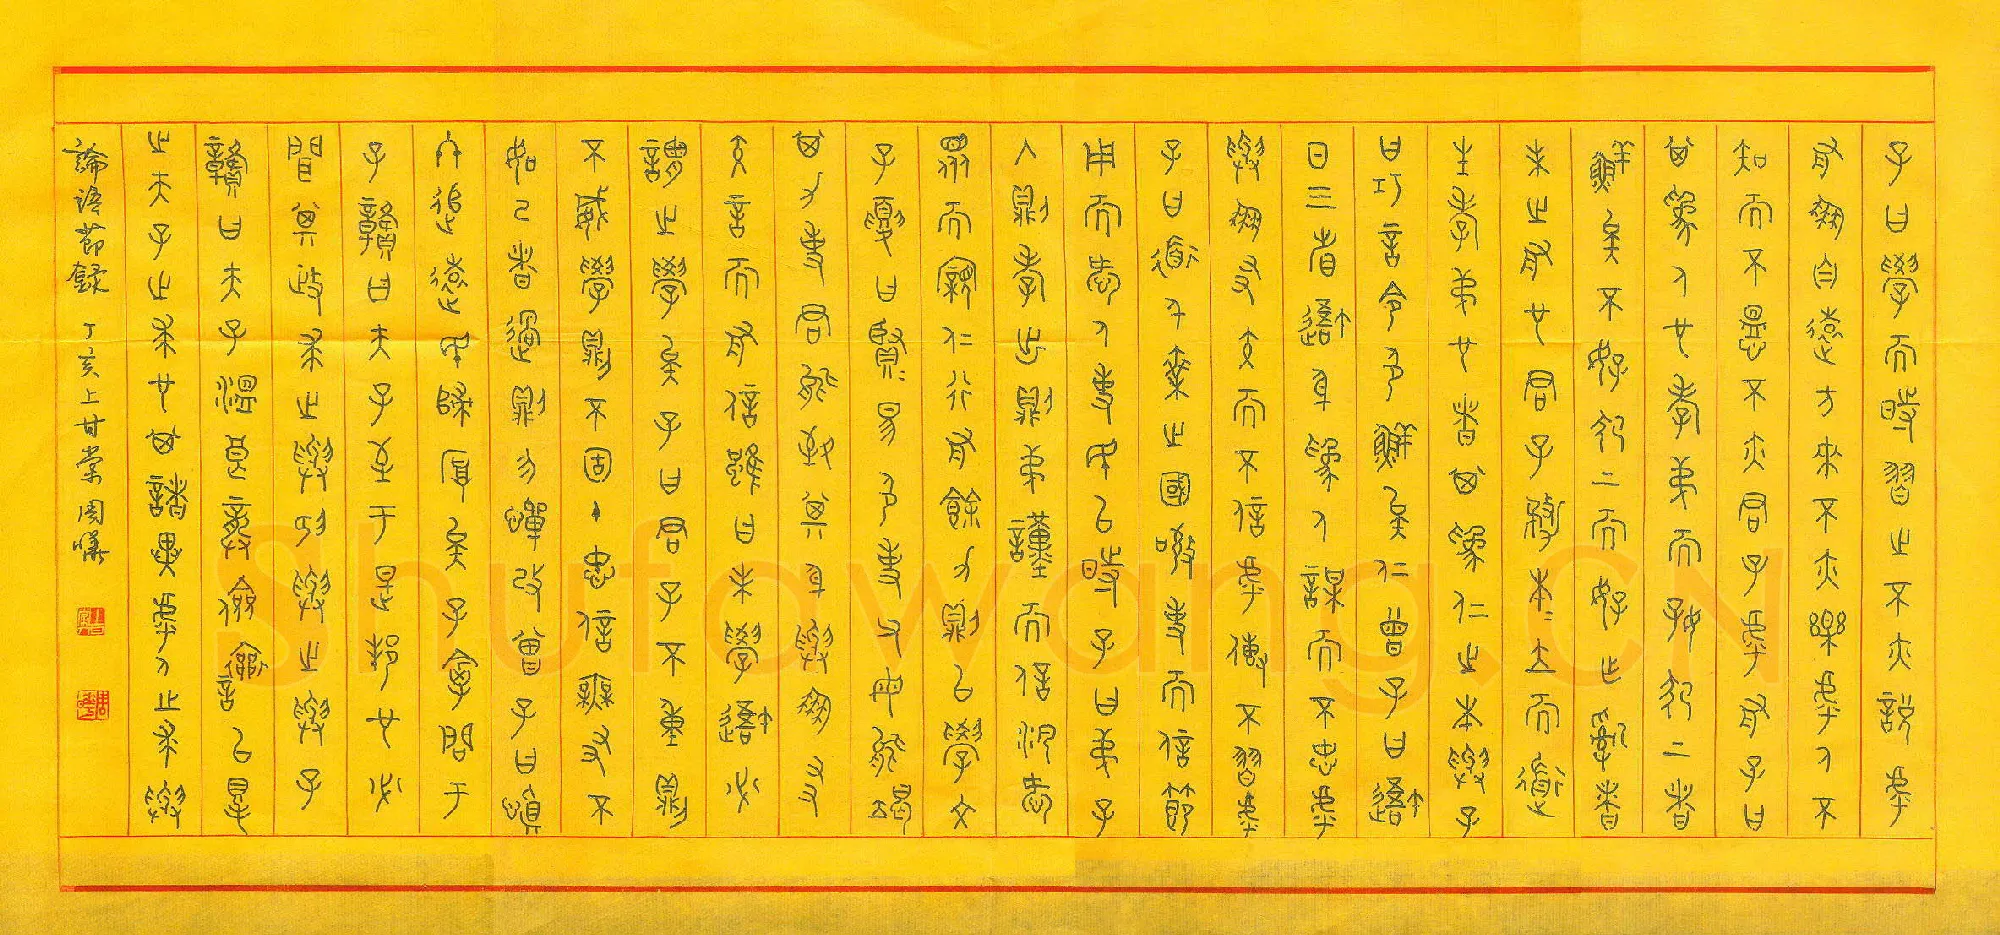 子曰學而時習之不亦說乎
有朋自遠方來不亦樂乎人不
知而不慍不亦君子乎有子曰
其為人也孝弟而好犯上者
鮮矣不好犯上而好作亂者
未之有也君子務本=立而道
生孝弟也者其為仁之本與子
曰巧言令色鮮矣仁曾子曰吾
日三省吾身為人謀而不忠乎
與朋友交而不信乎傳不習乎
子曰道千乘之國敬事而信節
用而愛人使民以時子曰弟子
入則孝出則弟謹而信汎愛
眾而親仁行有餘力則以學文
子夏曰賢=易色事父母能竭
其力事君能致其身與朋友
交言而有信雖曰未學吾必
謂之學矣子曰君子不重則
不威學則不固主忠信無友不
如己者過則勿憚改曾子曰慎
終追遠民歸厚矣子禽問于
子貢曰夫子至于是邦也必
聞其政求之與抑與之與子
貢曰夫子溫良恭儉讓以得
之夫子之求也其諸異乎人之求與
論語節錄 丁亥上甘棠周
Shufawang.CN